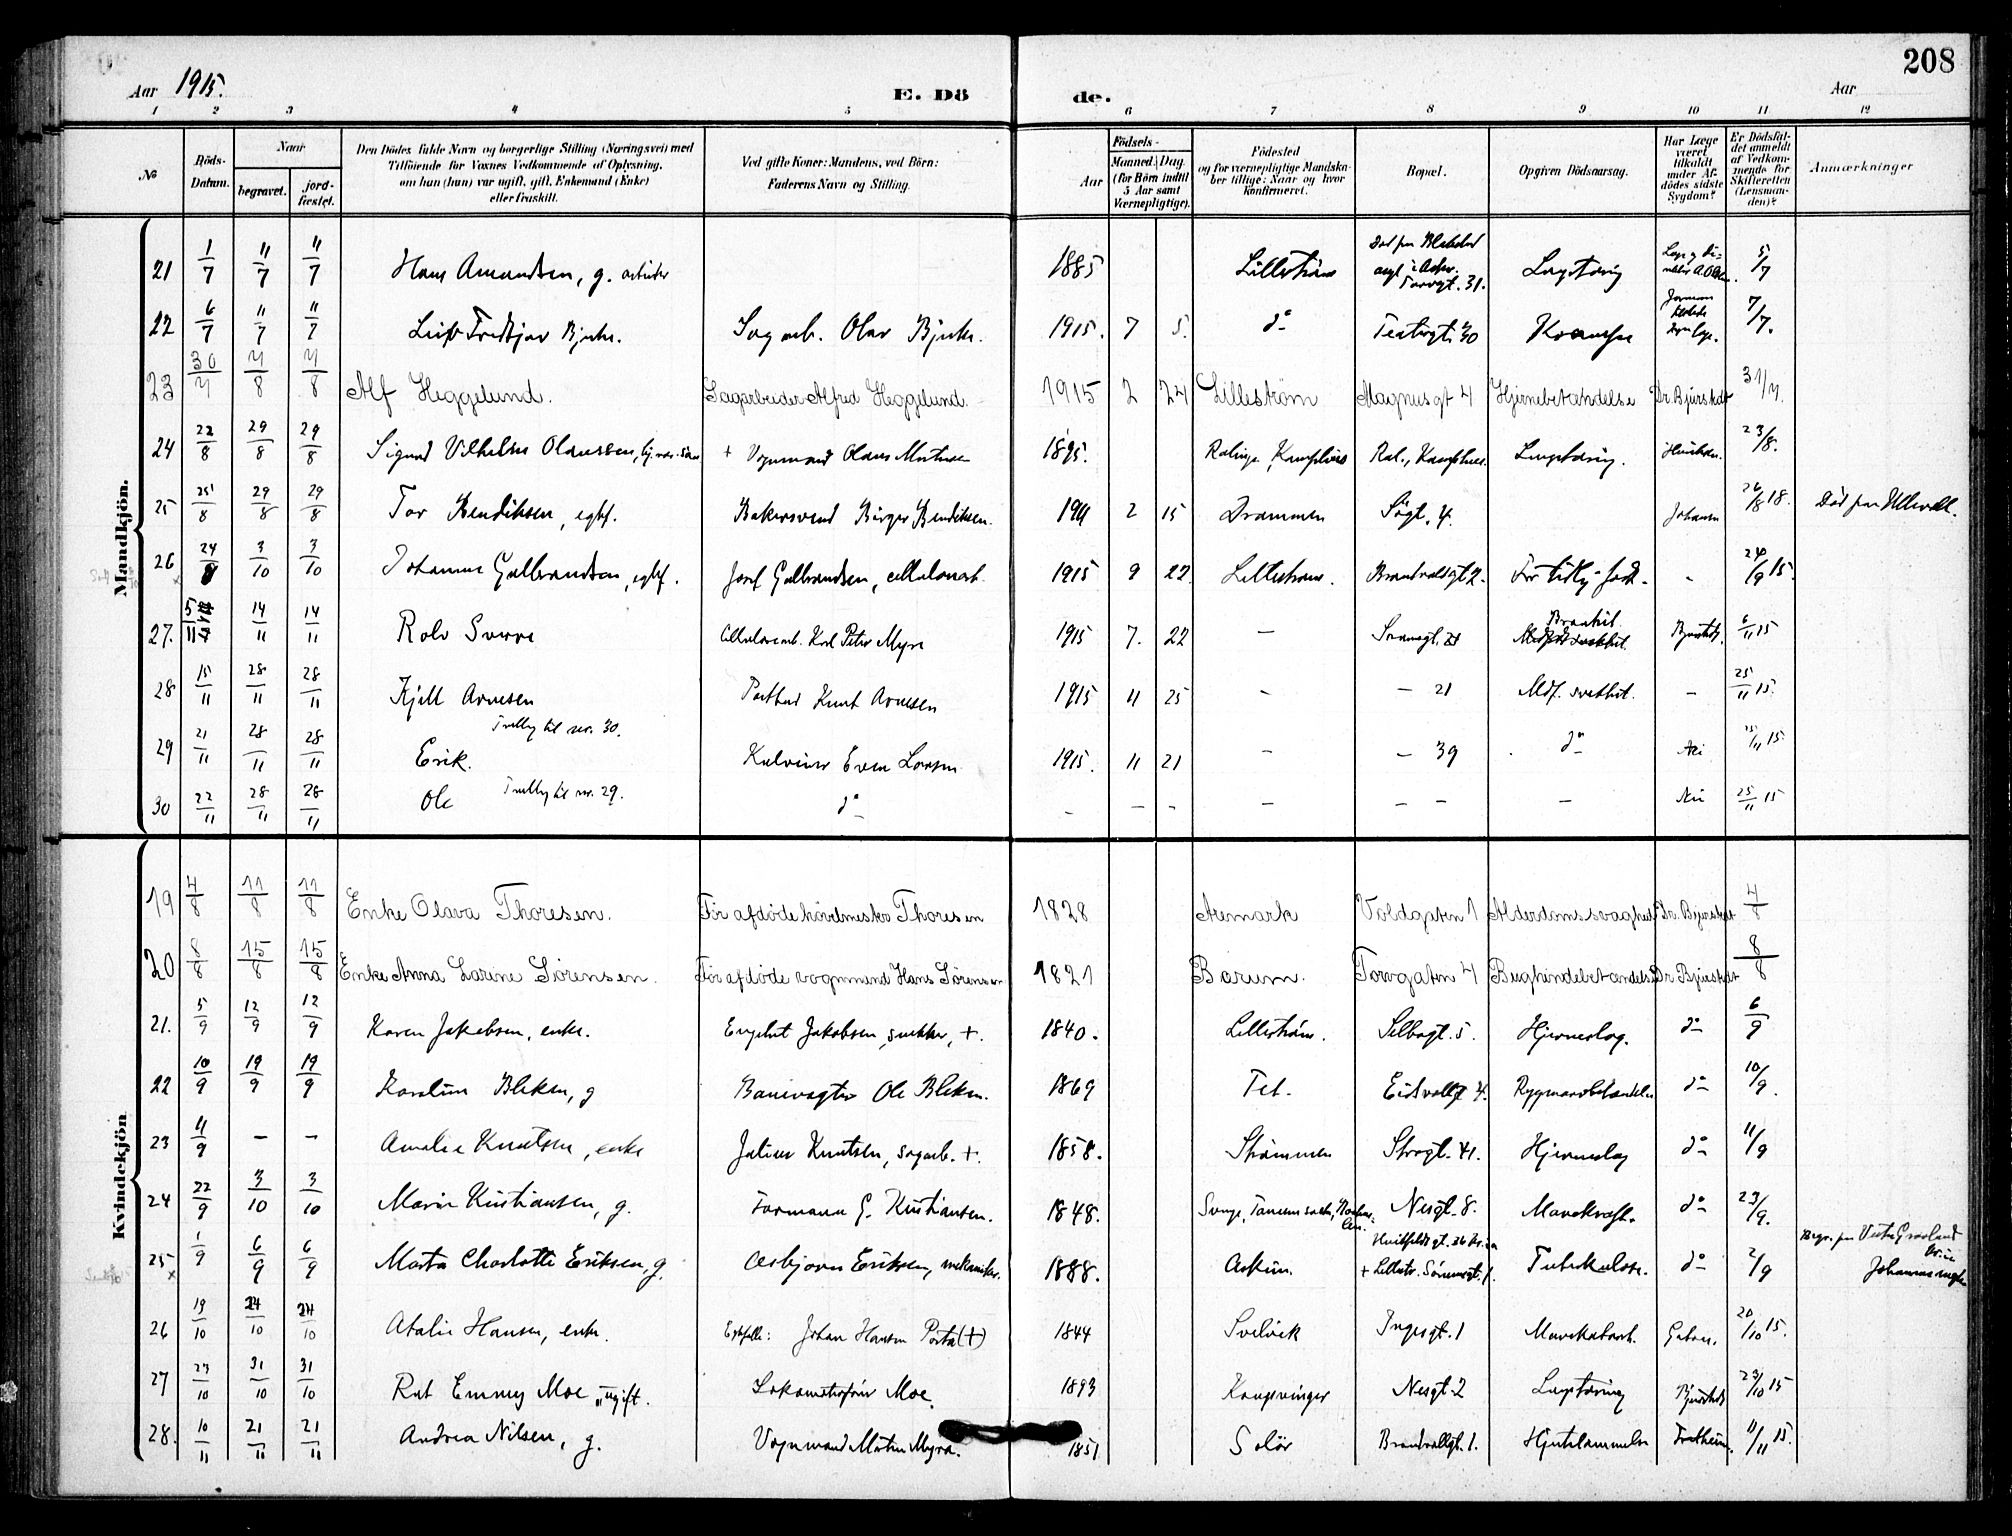 208
Aar 1915. E. Dö de. Aar
1 2 3 4 5 6 7 8 9 10 11 12
No
Döds-Datum.
Naar
begravet.
jord-fæstet.
Den Dödes fulde Navn og borgerlige Stilling (Næringsvei) med
Tilföiende for Voxnes Vedkommende af Oplysning,
om han (hun) var ugift, gift, Enkemand (Enke)
eller fraskilt.
Ved gifte Koner: Mandens, ved Börn:
Faderens Navn og Stilling.
Födsels-
Aar
Maaned. Dag.
(for Börn indtil
5 Aar samt
Værnepligtige).
Födested
og for værnepligtige Mandska-
ber tillige: Naar og hvor
konfirmeret.
Bopæl.
Opgiven Dödsaarsag.
Har Læge
været
tilkaldt
under Af-
dödes sidste
Sygdom?
Er Dödsfal-
det anmeldt
af Vedkom-
mende for
Skifteretten
(Lensman-
den)?
Anmærkninger
Mandkjön.
21 1/7 11/7 11/7 Hans Amundsen, g. arbeider 1885 Lilleström Torvgt. 31. Lungetæring 5/7
22 6/7 11/7 11/7 Leif Fridtjov Bjerke. Sagarb. Olav Bjerke. 1915. 7 5. do Teatergt. 30 Krampe 7/7.
23 30/7 7/8 7/8 Alf Heggelund. Sagarbeider Alfred Heggelund. 1915 2 24 Lilleström Magnusgt 4 Hjernebetændelse Dr. Bjürstedt 31/7.
24 22/8 29/8 29/8 Sigurd Vilhelm Olaussen, + Vognmand Olaus Mortensen 1895. Rælingen Ræl., Lungetæring. 23/8.
25 25/8 29/8 29/8 Tor Bendiksen, egtef. Bakersvend Birger Bendiksen. 1911 2 15 Drammen Sögt. 4. Johansen 26/8 18. Död paa Ullevaal.
26 24/8 3/10 3/10 Johannes Gulbrandsen, egtef. Josef Gulbrandsen, cellulosearb. 1915 9 22. Lilleström. Brandvoldgt 2. For tidlig född. - 24/9 15.
27. 5/11 14/11 14/11 Rolv Sverre Cellulosearb. Karl Peter Myra 1915 7. 22 — Bronkit. Bjürstedt. 6/11 15
28 15/11 28/11 28/11 Kjell Arnesen Postbud Knut Arnesen 1915 11 25 - — 21 Medf. svakhet. - 25/11 15.
29 21/11 28/11 28/11 Erik. Tvilling til nr. 30. Even Larsen 1915. 11 21 - — 39 do Nei 25/11 15.
30 22/11 28/11 28/11 Ole Tvilling til nr. 29. do - — - — — — — Nei 25/11 15
Kvindekjön
19 4/8 11/8 11/8 Enke Olava Thoresen. För afdöde hövelmester Thoresen 1828 Aremark Voldgaten 1 Alderdomssvaghed Dr. Bjürstedt 4/8
20 8/8 15/8 15/8 Enke Anna Larine Sörensen. För afdöde vognmand Hans Sörensen 1821 Bærum. Torvgaten 4 Bughindebetændelse Dr. Bjürstedt 8/8
21. 5/9 12/9 12/9 Karen Jakobsen, enke. Engelbret Jakobsen, snekker, +. 1840. Lilleström. 5. Hjerneslag. do 6/9
22 10/9 19/9 19/9 Karoline Bleken, g Banevogter Ole Bleken. 1869 Fet. Eidsvoldgt 4. Rygmarvbetændelse do 10/9.
23 11/9 - - Amalie Knutsen, enke Julius Knutsen, sagarb. +. 1858. Strömmen Storgt. 41. Hjerneslag do 11/9
24 22/9 3/10 3/10 Marie Kristiansen, g. Formann G. Kristiansen. 1848. Nesgt. 8. Mavekræft. do 23/9.
25 1/9 6/9 6/9 Marta Charlotte Eriksen, g. Asbjörn Eriksen, mekaniker. 1888. Askim. Huitfeldtsgt. 36 Kr.ia + Lillestr. Tuberkulose. do 2/9 Begr. paa Vestre Gravlund Kr.ia
26 19/10 24/10 24/10 Atalie Hansen, enke. Johan Hansen (+) 1844 Svelvik Ingesgt. 1 20/10 15.
27 23/10 31/10 31/10 Rut Emmy Moe, ugift. Lokomotivförer Moe. 1893 Kongsvinger Nesgt. 2 Lungetæring Bjürstedt 23/10 15
28. 10/11 21/11 21/11 Andrea Nilsen, g. Vognmand Martin Myra. 1851 Solör Brandvoldgt. 1. Hjertelammelse Fretheim. 11/11 15.